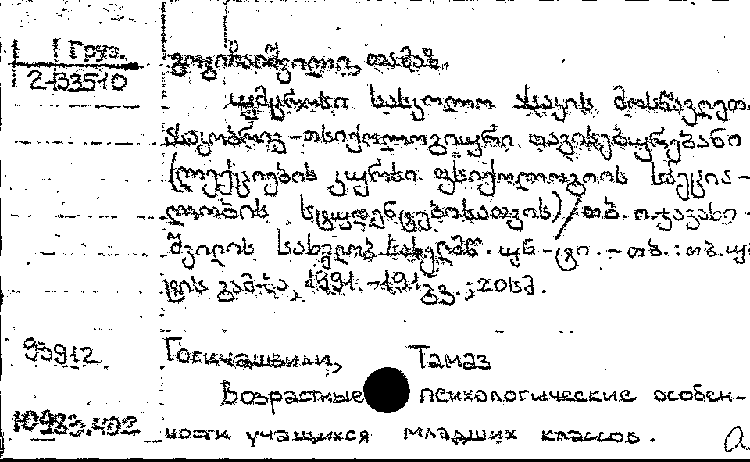 Груз.
2-133510
გოგიჩაიშვილი, თამაზ.
უმცროსი სასკოლო ასაკის მოსწავლეთა
ასაკობრივ-ფსიქოლოგიური თავისებურებანი
(ლექციების კურსი ფსიქოლოგიის სპეცია-
ლობის სტუდენტებისათვის)/თბ. ი. ჯავახი-
შვილის სახელობ. სახელმწ. უნ-ტი.-თბ.:თბ.
ტის გამ-ბა, 1991.-191გვ.;20სმ.
95912 Гогичашвили, Тамаз
Возрастные психологические особен-
10983.492 ности учащихся младших классов.